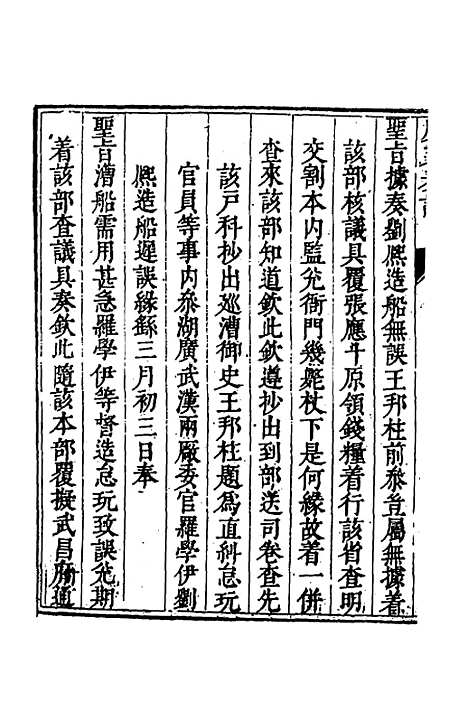 聖旨據奏劉熈造船無誤王邦柱前叅豈屬無據着
該部核議具覆張應斗原領錢糧着行該省查明
交劃本内監兊衙門幾斃杖下是何緣故着一併
查來該部知道欽此欽遵抄出到部送司卷查先
該戸科抄出廵漕御史王邦柱題爲直糾怠玩
官員等事内叅湖廣武漢兩厰委官羅學伊劉
熈造船遲誤緣繇三月初三日奉
聖旨漕船需用甚急羅學伊等督造怠玩致誤兊期
着該部查議具奏欽此隨該本部覆擬武昌府通